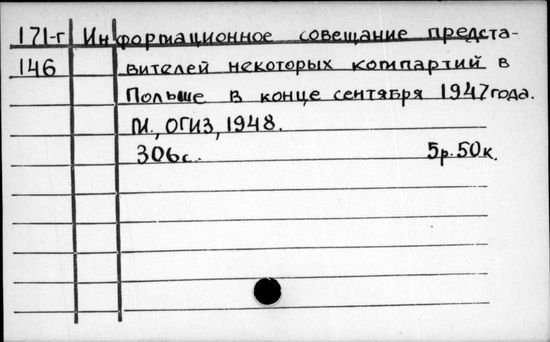 171-г Информационное совещание предста-
146 вителей некоторых компартий в
Польше в конце сентября 1947 года.
М., ОГИЗ, 1948.
306с. 5р.50к.